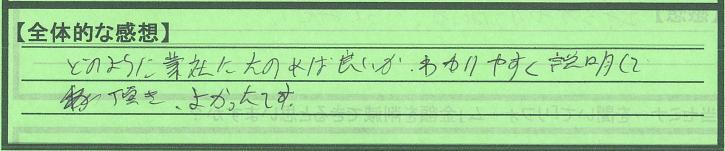 【全体的な感想】
どのように業社にたのめば良いか、わかりやすく説明して
頂き、よかったです。